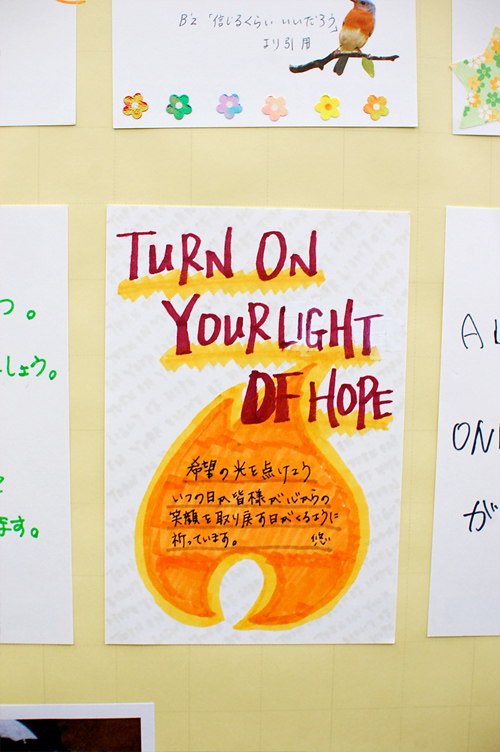 B'z「信じるくらいいいだろう」
より引用
TURN ON
YOUR LIGHT
OF HOPE
希望の光を点けよう
いつの日か皆様が心からの
笑顔を取り戻す日がくるように
祈っています。 悠
つ。
しょう。
と
ます。
AL
ONE
が